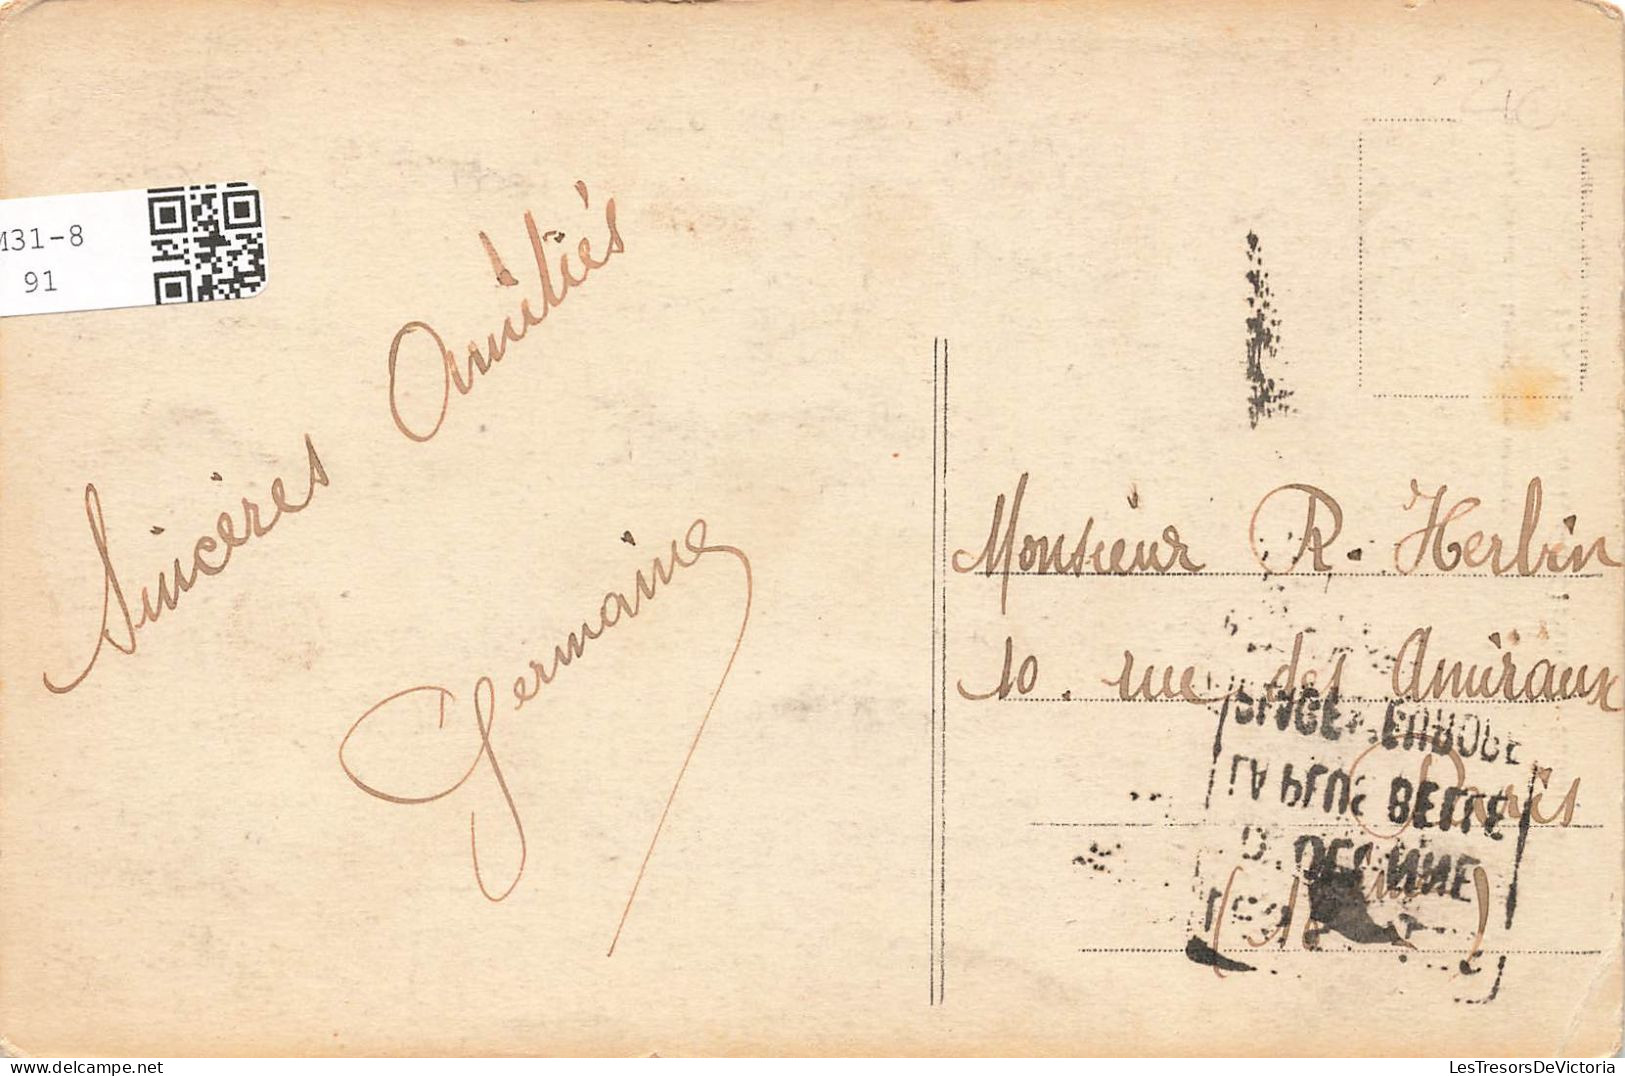 M31-8
91
Sincères Amitiés
Germaine
Monsieur R. Herbin
10. rue des Amiraux
Paris
LA PLUS BELLE
LesTresorsDeVictoria